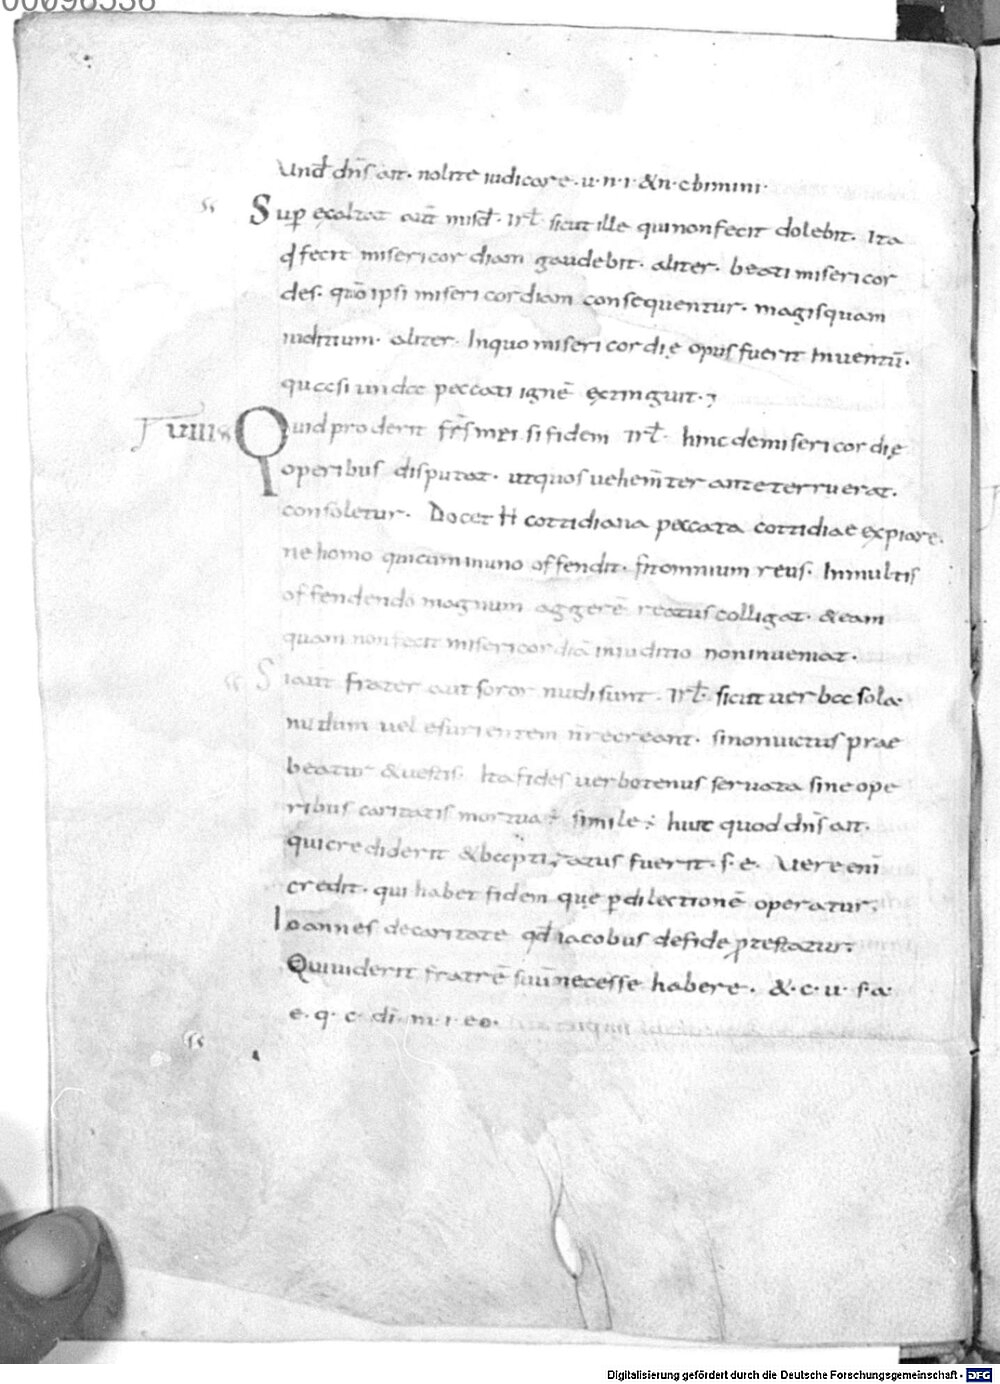 00096536
Und̄ dn̄s ait. nolite iudicare. u. n. i. & n. cbimini.
Sup̄ exaltat aut̄ misd̄. irł. sicut ille qui non fecit dolebit. Ita
q̄ fecit misericordiam gaudebit. aliter. beati misericor
des. qm̄ ipsi misericordiam consequentur. magis quam
iuditium. aliter. In quo misericordię opus fuerit inuentū.
quasi unda peccati ignē extinguit.
uiiii Quid proderit fr̄s mei si fidem irł. hinc de misericordię
operibus disputat. ut quos uehem̄ter ante terruerat.
consoletur. Docet ħ cottidiana peccata cottidiae expiare.
ne homo qui cum in uno offendit. fit omnium reus. In multis
offendendo magnum aggerē reatus colligat. & eam
quam non fecit misericordiā in iuditio non inueniat.
Si aut frater aut soror nudi sunt. irł. sicut uerba sola
nudum uel esurientem n̄ recreant. si non uictus prae
beatur & uestis. Ita fides uerbo tenus seruata sine ope
ribus caritatis mortua ÷ simile ÷ huic quod dn̄s ait.
qui crediderit & baptizatus fuerit. s. e. Uere eni̅
credit. qui habet fidem que p̱ dilectionē operatur.
Ioannes de caritate qd̄ iacobus de fide p̄testatur.
Qui uiderit fratrē suū necesse habere. &. c. u. s. a.
e. q. c. di̅. m. i. eo.
Digitalisierung gefördert durch die Deutsche Forschungsgemeinschaft - DFG